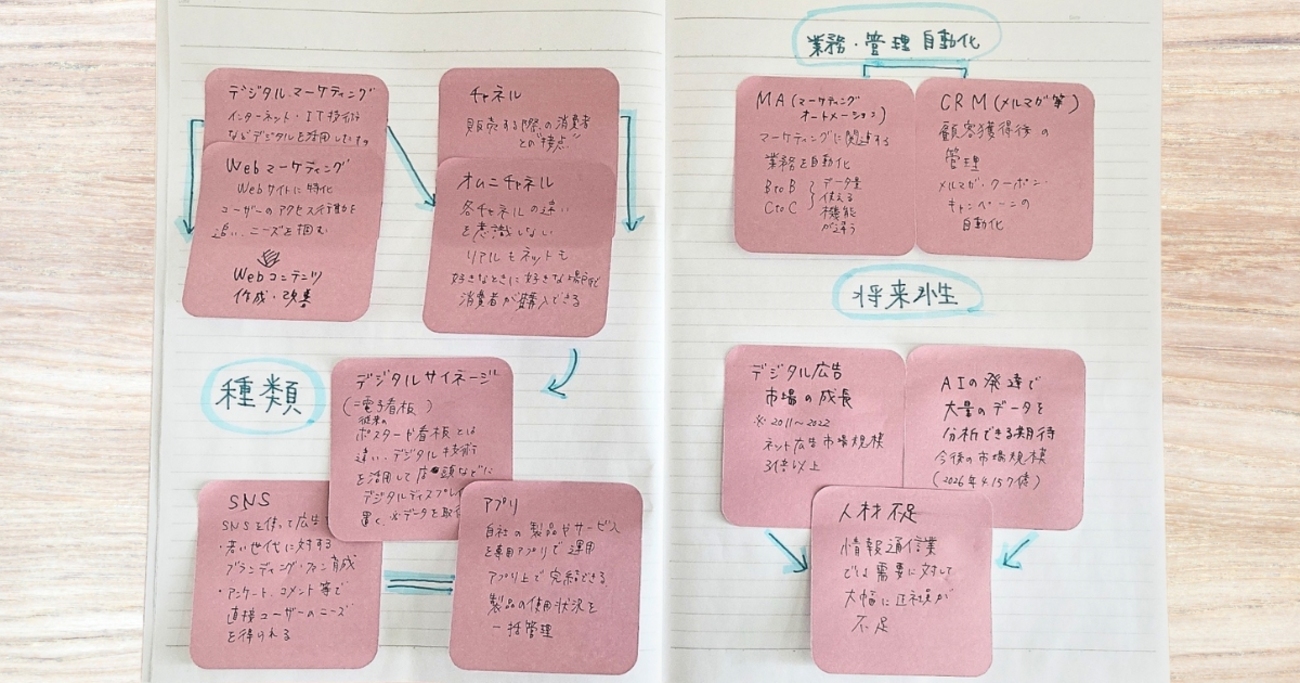 デジタルマーケティング
インターネット・IT技術
などデジタルを活用した
Webマーケティング
Webサイトに特化
ユーザーのアクセス行動を
追い、ニーズを掴む
Webコンテンツ
作成・改善
チャネル
販売する際の消費者
との"接点"
オムニチャネル
各チャネルの違い
を意識しない
リアルもネットも
好きなときに好きな場所で
消費者が購入できる
種類
デジタルサイネージ
(=電子看板)
従来の
ポスターや看板とは
違い、デジタル技術
を活用して店頭などに
デジタルディスプレイ
置く、※データを取
SNS
SNSを使って広告
・若い世代に対する
ブランディング・ファン育成
・アンケート、コメント等で
直接ユーザーのニーズ
を得られる
アプリ
自社の製品やサービス
を専用アプリで運用
アプリ上で完結できる
製品の使用状況を
一括管理
業務・管理 自動化
MA(マーケティング
オートメーション)
マーケティングに関連する
業務を自動化
BtoB
CtoC
データ量
使える
機能
が違う
CRM(メルマガ等)
顧客獲得後の
管理
メルマガ・クーポン・
キャンペーンの
自動化
将来性
デジタル広告
市場の成長
※2011~2022
ネット広告市場規模
3倍以上
AIの発達で
大量のデータを
分析できる期待
今後の市場規模
人材不足
情報通信業
では需要に対して
大幅に正社員が
不足